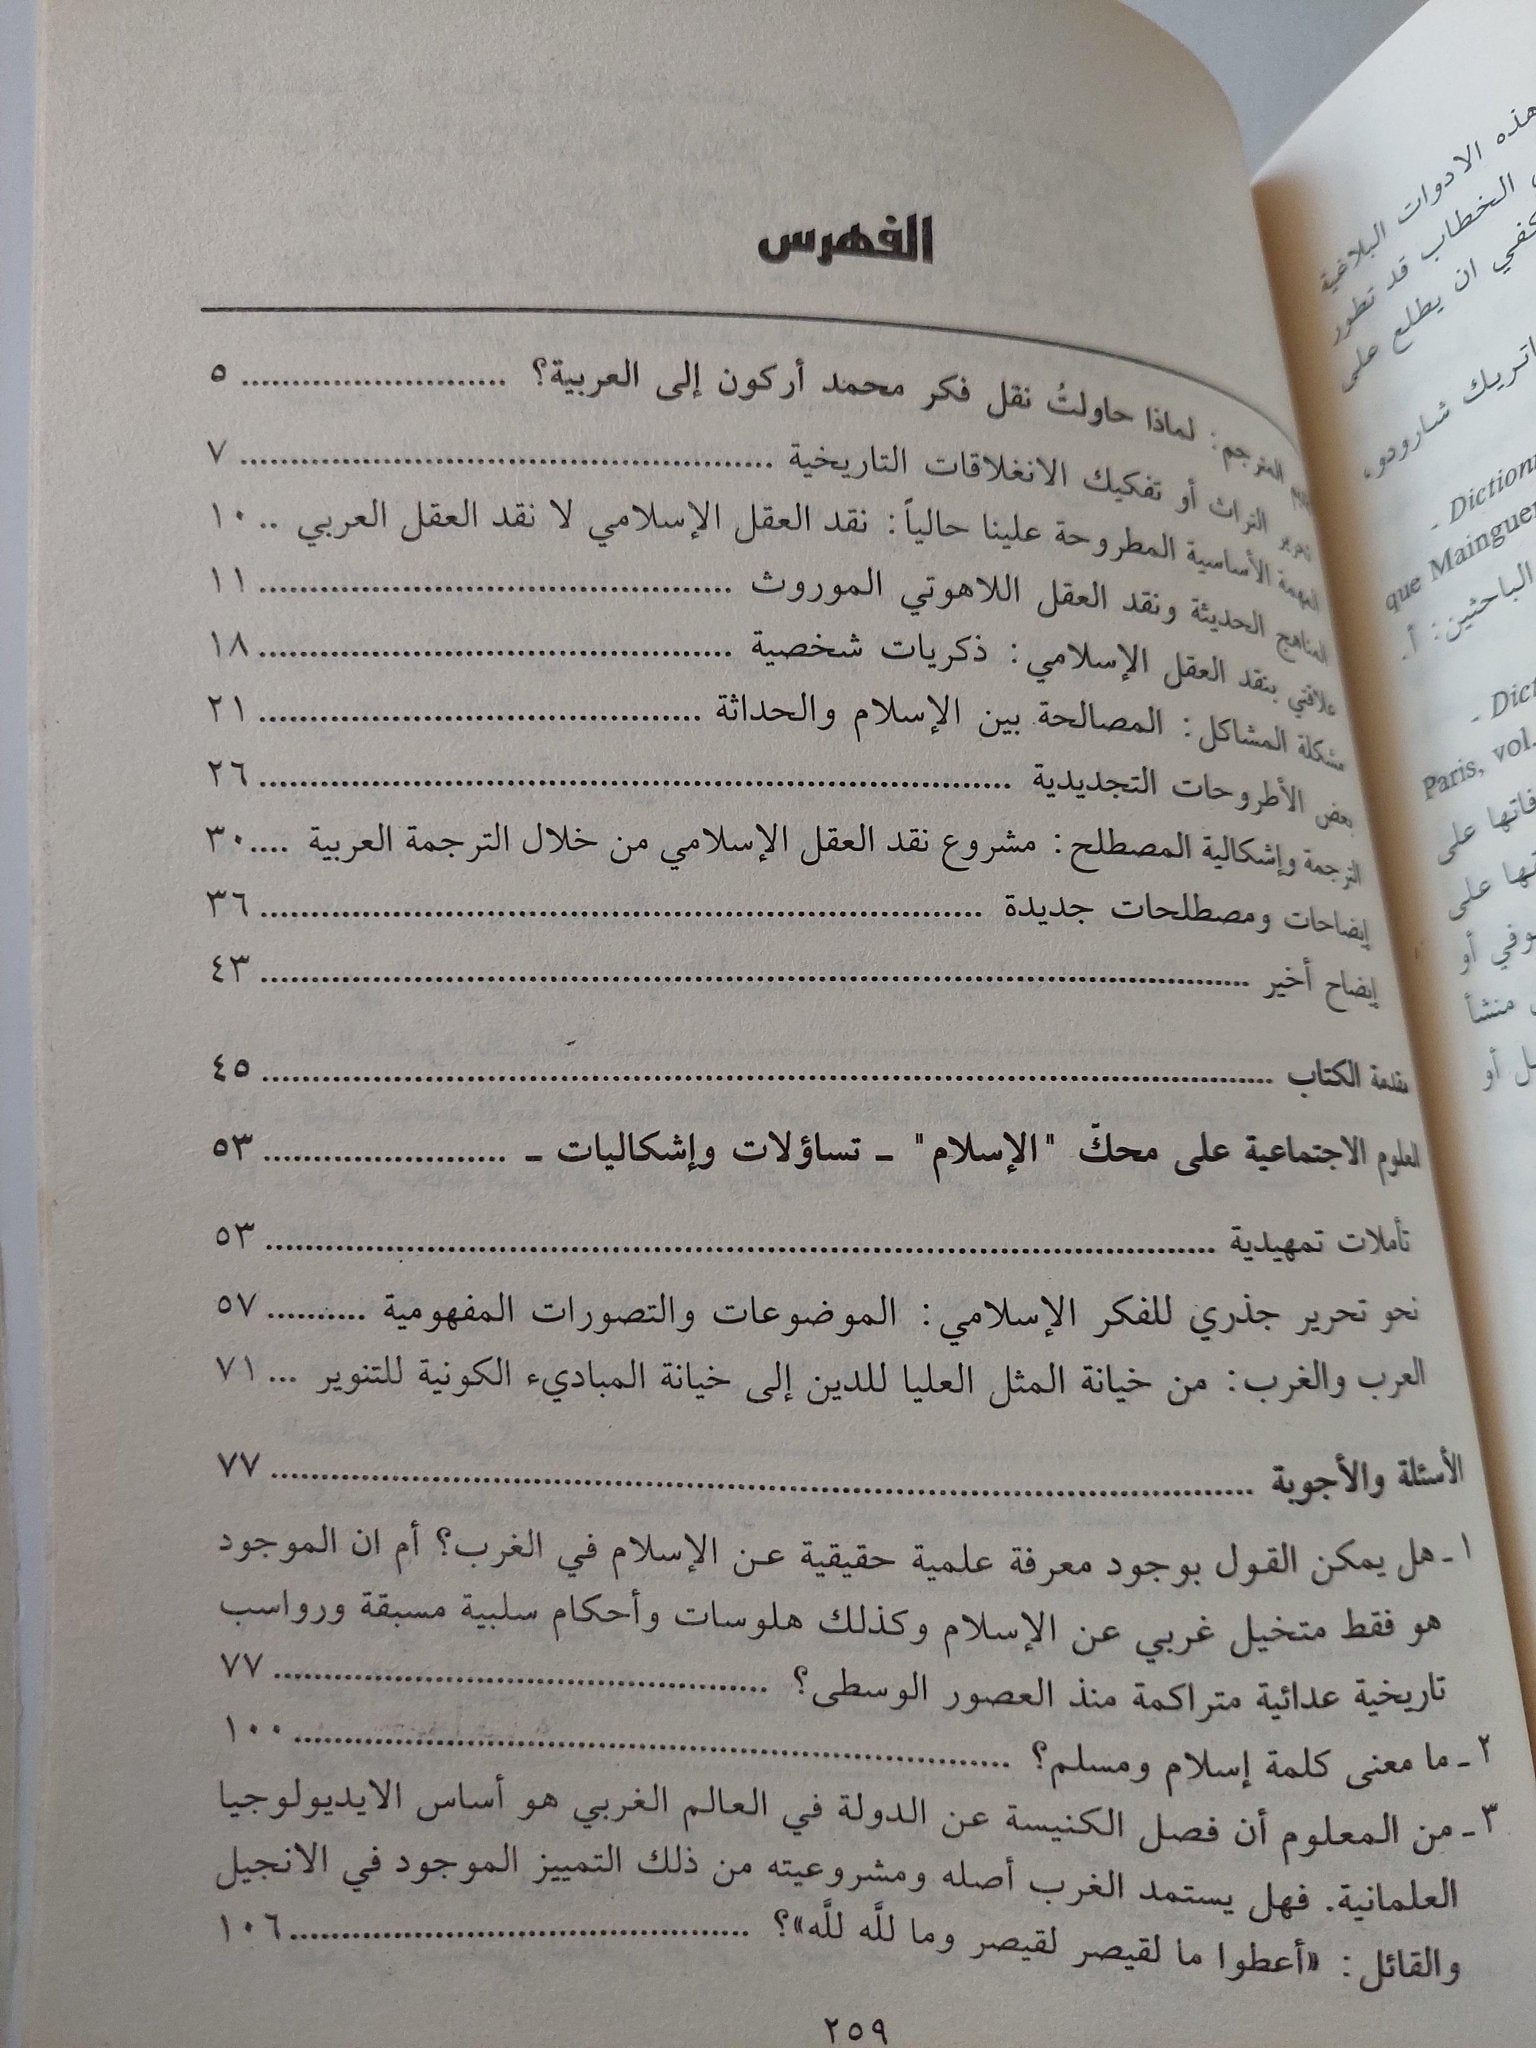 الفهرس
المترجم: لماذا حاولتُ نقل فكر محمد أركون إلى العربية؟ ......................... ٥
تحرير التراث أو تفكيك الانغلاقات التاريخية .................................................... ٧
المهمة الأساسية المطروحة علينا حالياً: نقد العقل الإسلامي لا نقد العقل العربي .. ١٠
المناهج الحديثة ونقد العقل اللاهوتي الموروث .............................................. ١١
علاقتي بنقد العقل الإسلامي: ذكريات شخصية .............................................. ١٨
مشكلة المشاكل: المصالحة بين الإسلام والحداثة ........................................... ٢١
بعض الأطروحات التجديدية ......................................................................... ٢٦
الترجمة وإشكالية المصطلح: مشروع نقد العقل الإسلامي من خلال الترجمة العربية ....٣٠
إيضاحات ومصطلحات جديدة ...................................................................... ٣٦
إيضاح أخير ................................................................................................ ٤٣
مقدمة الكتاب .................................................................................................. ٤٥
العلوم الاجتماعية على محكّ "الإسلام" ـ تساؤلات وإشكاليات ـ ........................ ٥٣
تأملات تمهيدية ............................................................................................ ٥٣
نحو تحرير جذري للفكر الإسلامي: الموضوعات والتصورات المفهومية .......... ٥٧
العرب والغرب: من خيانة المثل العليا للدين إلى خيانة المباديء الكونية للتنوير ... ٧١
الأسئلة والأجوبة ................................................................................................ ٧٧
١ ـ هل يمكن القول بوجود معرفة علمية حقيقية عن الإسلام في الغرب؟ أم ان الموجود
هو فقط متخيل غربي عن الإسلام وكذلك هلوسات وأحكام سلبية مسبقة ورواسب
تاريخية عدائية متراكمة منذ العصور الوسطى؟ ................................................ ٧٧
٢ ـ ما معنى كلمة إسلام ومسلم؟ ..................................................................... ١٠٠
٣ ـ من المعلوم أن فصل الكنيسة عن الدولة في العالم الغربي هو أساس الايديولوجيا
العلمانية. فهل يستمد الغرب أصله ومشروعيته من ذلك التمييز الموجود في الانجيل
والقائل: «أعطوا ما لقيصر لقيصر وما للَّه للَّه»؟ ............................................. ١٠٦
٢٥٩
هذه الادوات البلاغية
الخطاب قد تطور
ان يطلع على
شارودو،
- Dictionn
que Mainguen
الباحثين: أ.
- Dict
Paris, vol.
على
على
أو
منشأ
أو